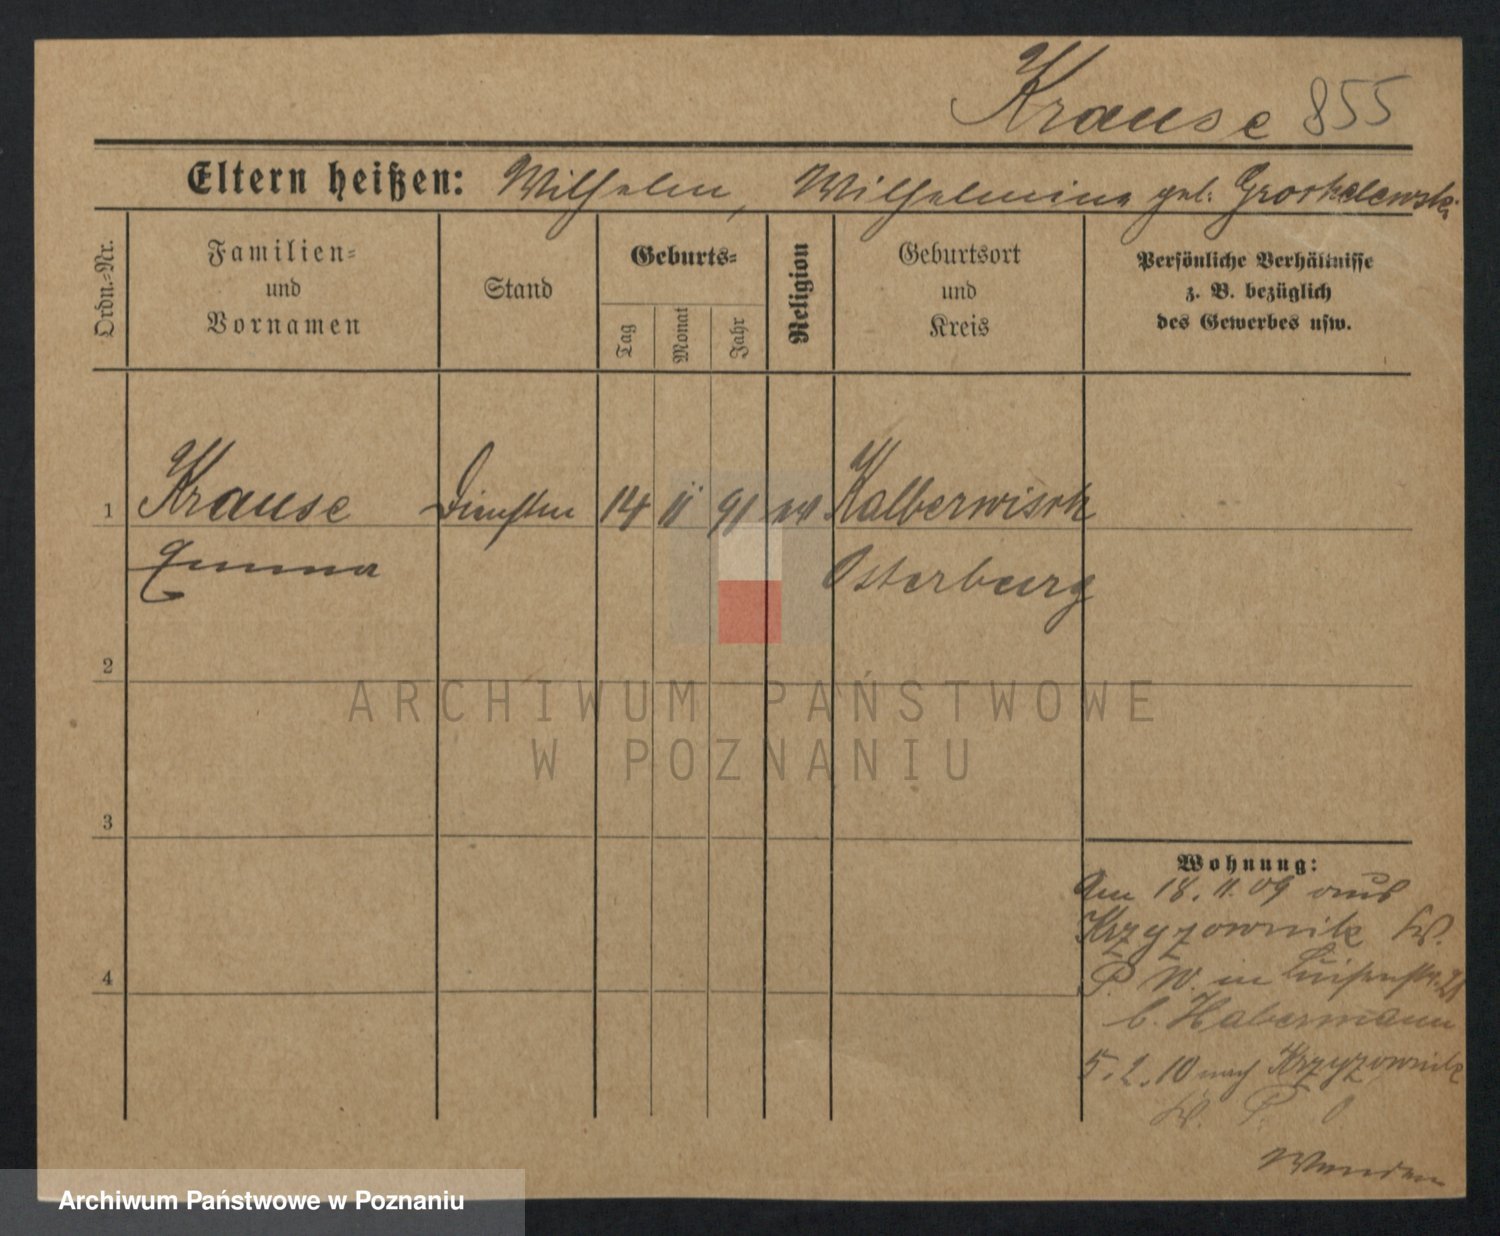 Krause 855
Eltern heißen: Wilhelm, Wilhelmine geb. Groskelewski
Ordn.-Nr.
Familien=
und
Vornamen
Stand
Geburts=
Tag
Monat
Jahr
Religion
Geburtsort
und
Kreis
Persönliche Verhältnisse
z. B. bezüglich
des Gewerbes usw.
1 Krause 14 11 91 Kalberwisch
Emma Osterburg
2
3
4
Wohnung:
Am 18. 11. 09 aus
Krzyzownik Kr.
P. W. in Luisenstr. 21
b. Habermann
5. 2. 10 nach Krzyzownik
Kr. P. O.
ARCHIWUM PAŃSTWOWE
W POZNANIU
Archiwum Państwowe w Poznaniu